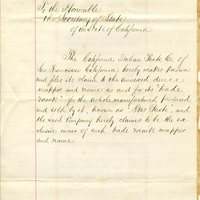 To the Honorable
the Secretary of State
of the State of California
The California Italian Paste Co. of
San Francisco California hereby makes known
and files its claim to the annexed device
wrapper and name as and for its "Trade
Mark" for the article manufactured, produced
and sold by it, known as "Paste", and
the said Company hereby claims to be the ex-
clusive owner of such trade mark wrapper
and name.